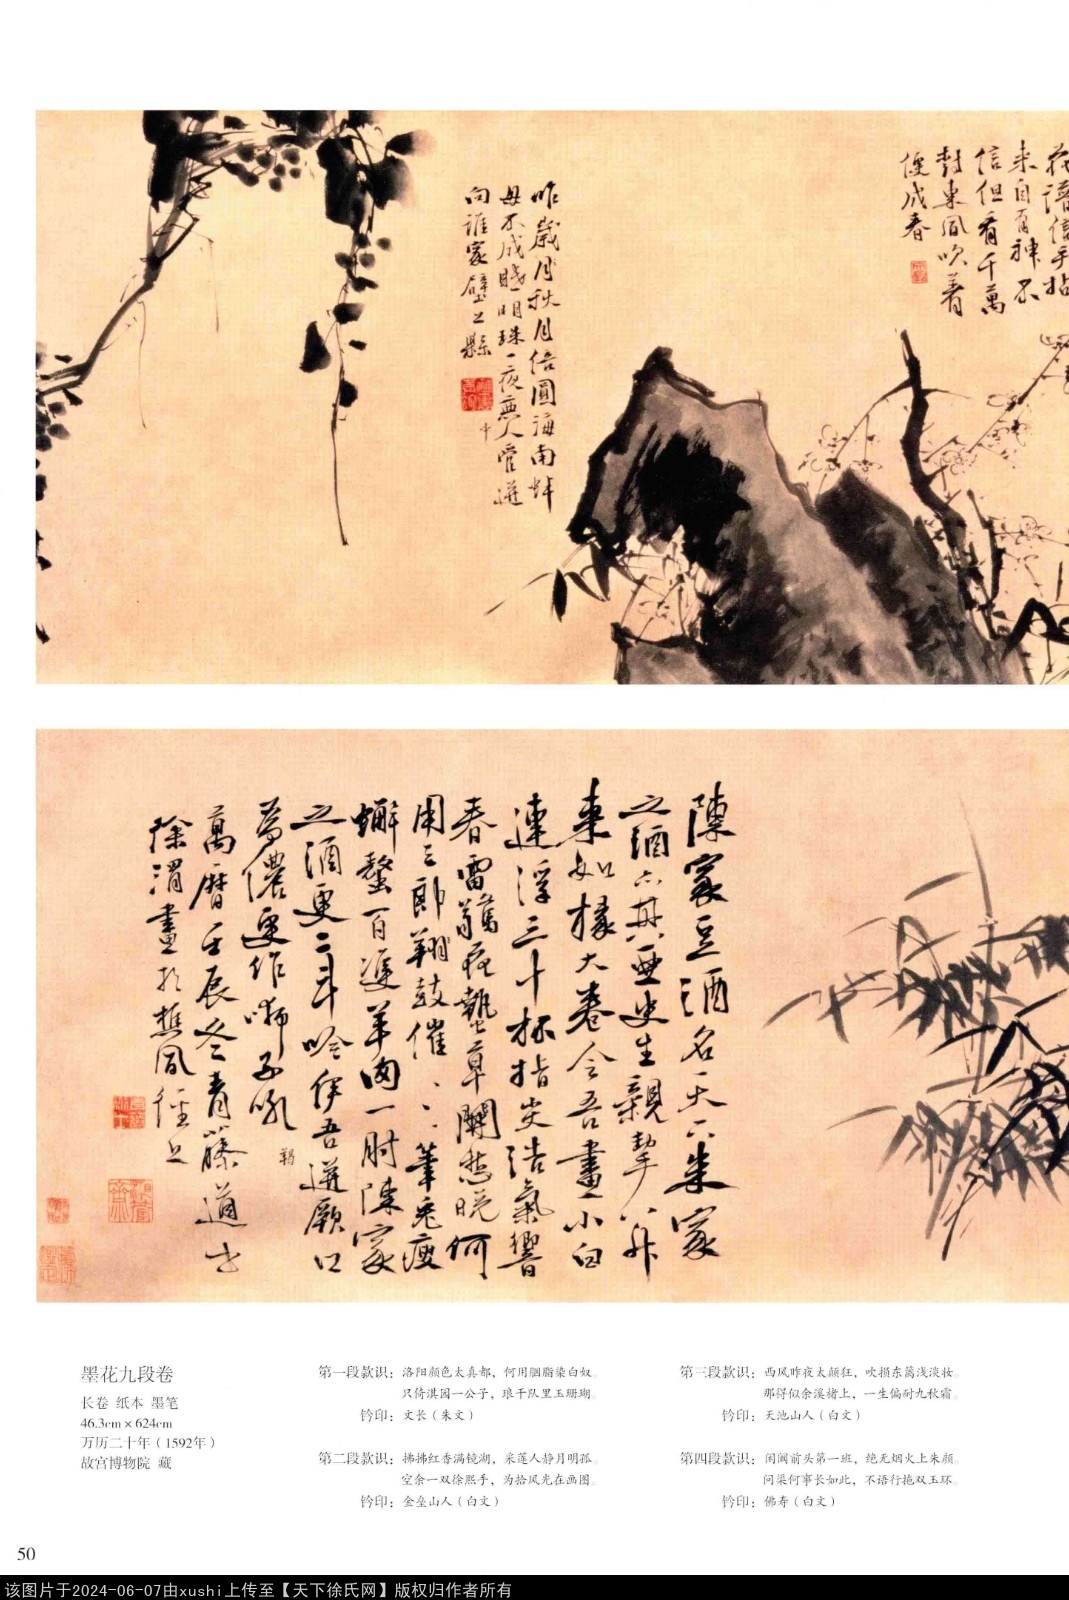 花譜信手拈
来自有神不
信但看千萬
樹東風吹着
便成春
昨歲月秋月倍圓海南蚌
母不成眠明珠一夜無人管迸
向誰家壁上懸
中
陳家豆酒名天下朱家
之酒亦其亞史生親挈八升
來如椽大卷令吾畫小白
連浮三十杯指尖浩氣響
春雷驚花蟄草開愁晚何
用三郎翔鼓催、、筆兔瘦
蠏螯百隻羊肉一肘陳家
之酒更二斗吟伊吾迸厥口
為儂更作獅子吼
羯
萬曆壬辰冬青藤道士
徐渭畫於樵風徑上
墨花九段卷
长卷 纸本 墨笔
46.3cm×624cm
万历二十年（1592年）
故宫博物院 藏
第一段款识：洛阳颜色太真都，何用胭脂染白奴。
只倚淇园一公子，琅干队里玉珊瑚。
钤印：文长（朱文）
第二段款识：拂拂红香满镜湖，采莲人静月明孤。
空余一双徐熙手，为拾风光在画图。
钤印：金垒山人（白文）
第三段款识：西风昨夜太颠狂，吹损东篱浅淡妆。
那得似余溪楮上，一生偏耐九秋霜。
钤印：天池山人（白文）
第四段款识：闲阆前头第一班，绝无烟火上朱颜。
问渠何事长如此，不语行拖双玉环。
钤印：佛寿（白文）
50
该图片于2024-06-07由xushi上传至【天下徐氏网】版权归作者所有